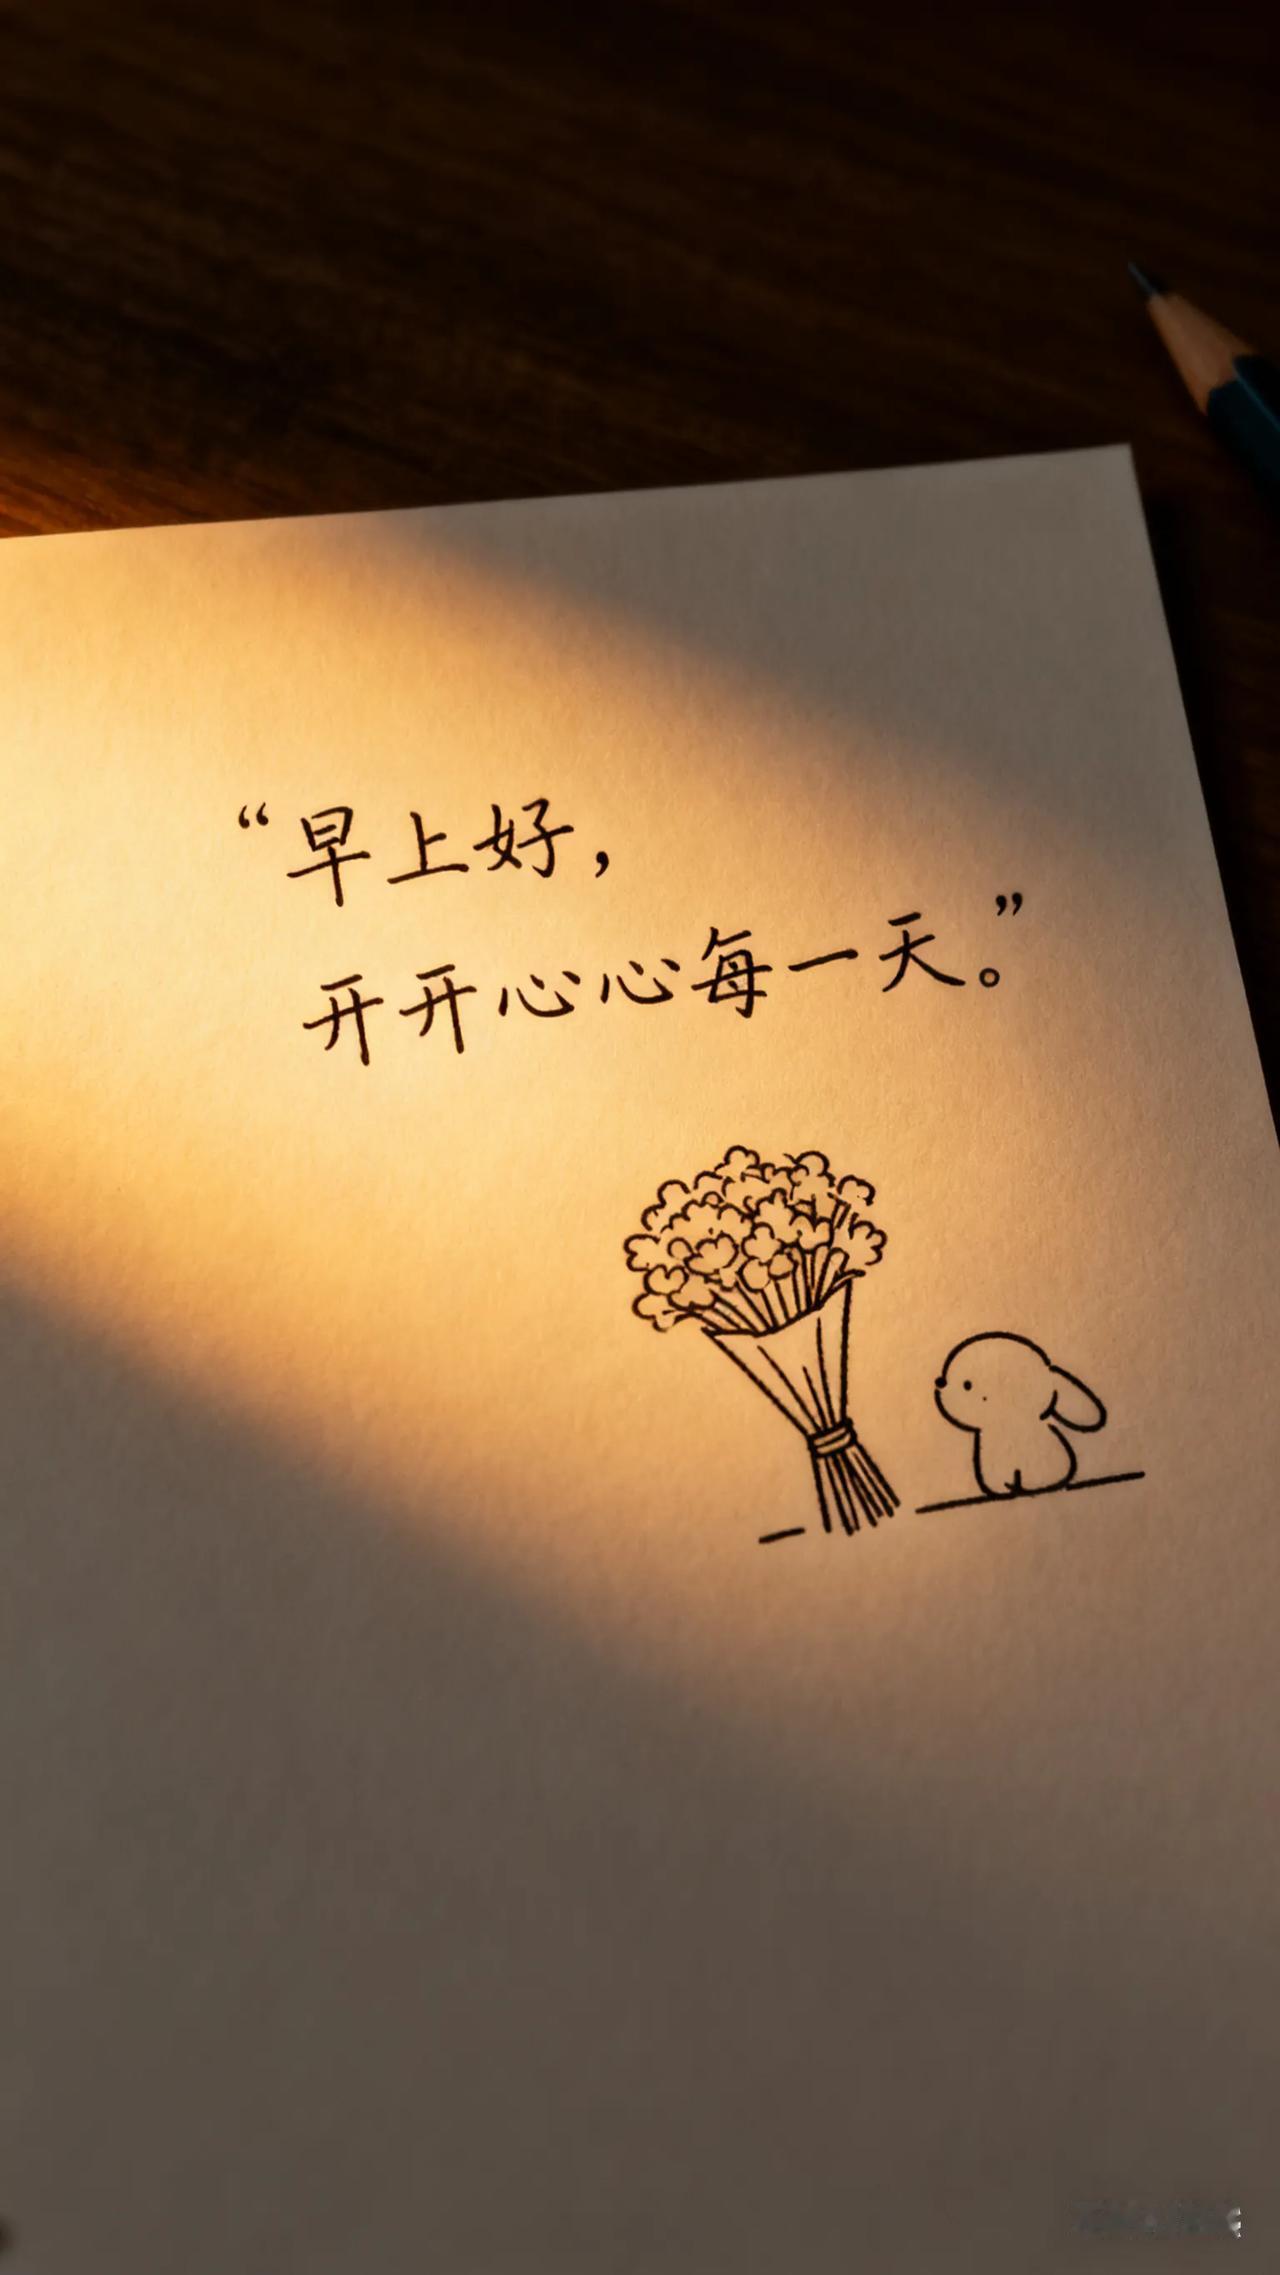 “早上好，
开开心心每一天。”